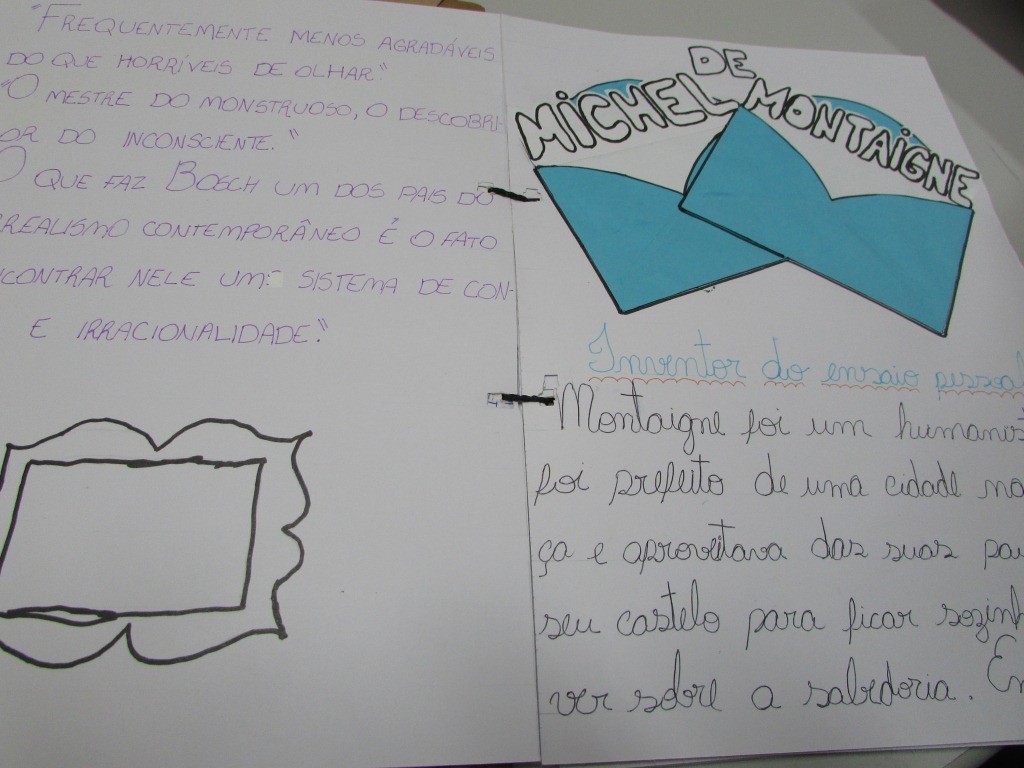 "FREQUENTEMENTE MENOS AGRADÁVEIS
DO QUE HORRÍVEIS DE OLHAR."
"O MESTRE DO MONSTRUOSO, O DESCOBRI-
OR DO INCONSCIENTE."
O QUE FAZ BOSCH UM DOS PAIS DO
REALISMO CONTEMPORÂNEO É O FATO
CONTRAR NELE UM SISTEMA DE CON-
E IRRACIONALIDADE."
MICHEL DE MONTAIGNE
Inventor do ensaio pessoal
Montaigne foi um humanist
foi prefeito de uma cidade na
ça e aproveitava das suas pau
seu castelo para ficar sozinh
ver sobre a sabedoria. Em